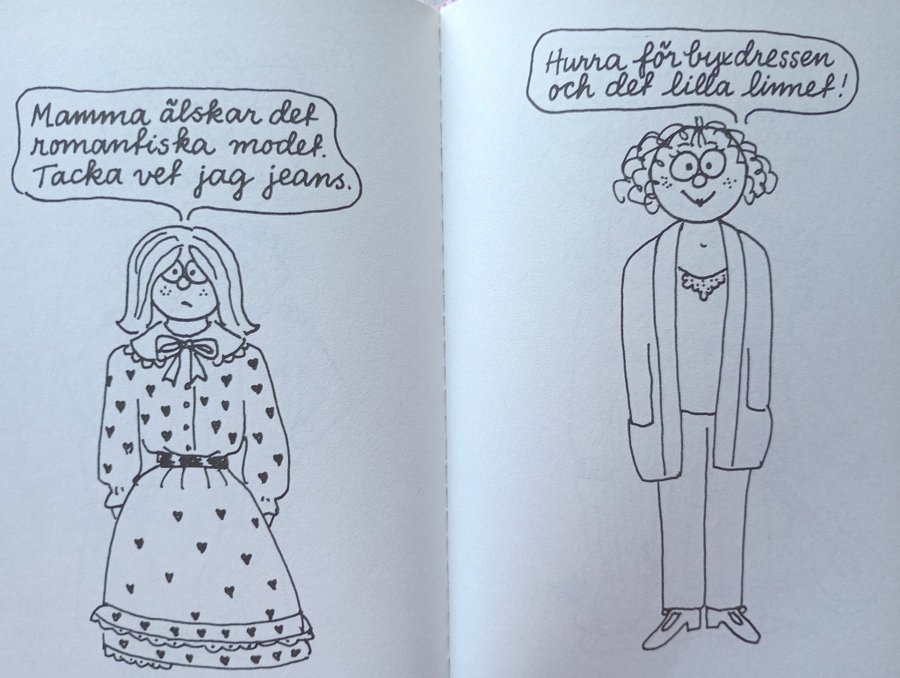 Mamma älskar det
romantiska modet.
Tacka vet jag jeans.
Hurra för byxdressen
och det lilla linnet!